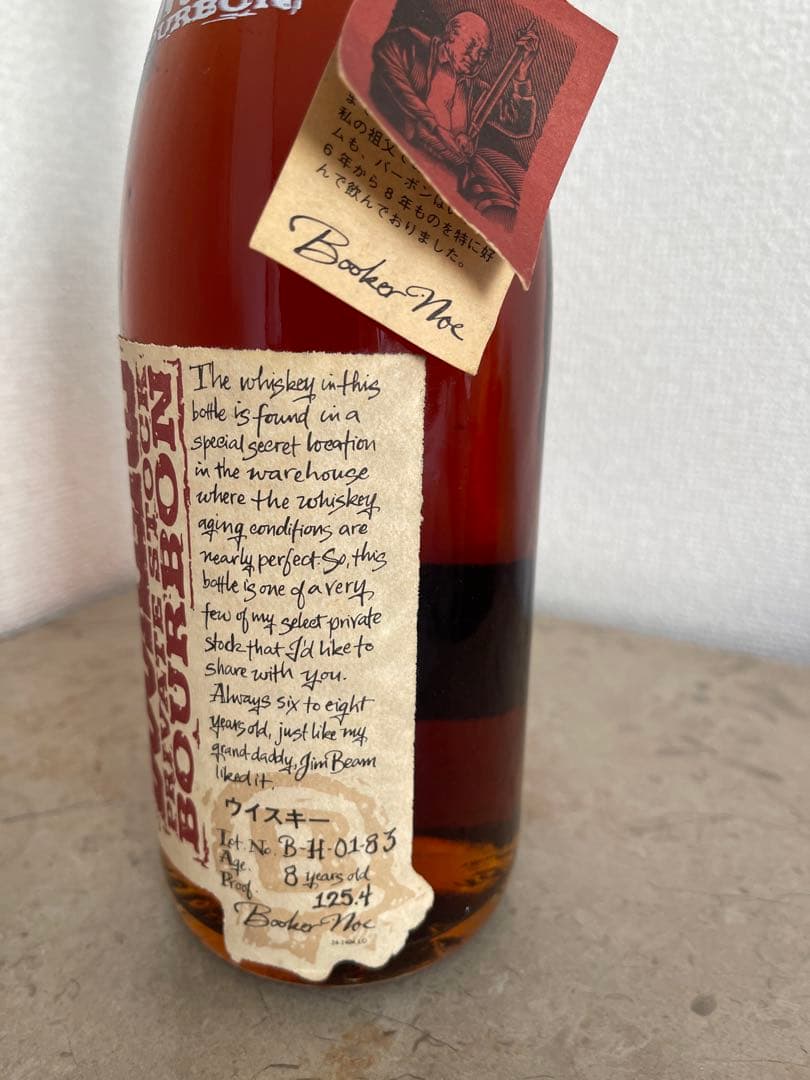 BOURBON
私の祖父
ムも、バーボンは
6年から8年ものを特に好
んで飲んでおりました。
Booker Noe
PRIVATE STOCK
BOURBON
The whiskey in this
bottle is found in a
special secret location
in the warehouse
where the whiskey
aging conditions are
nearly perfect. So, this
bottle is one of a very
few of my select private
stock that I'd like to
share with you.
Always six to eight
years old, just like my
grand daddy, Jim Beam
liked it.
ウイスキー
Lot. No. B-H-01-83
Age. 8 years old
Proof. 125.4
Booker Noe